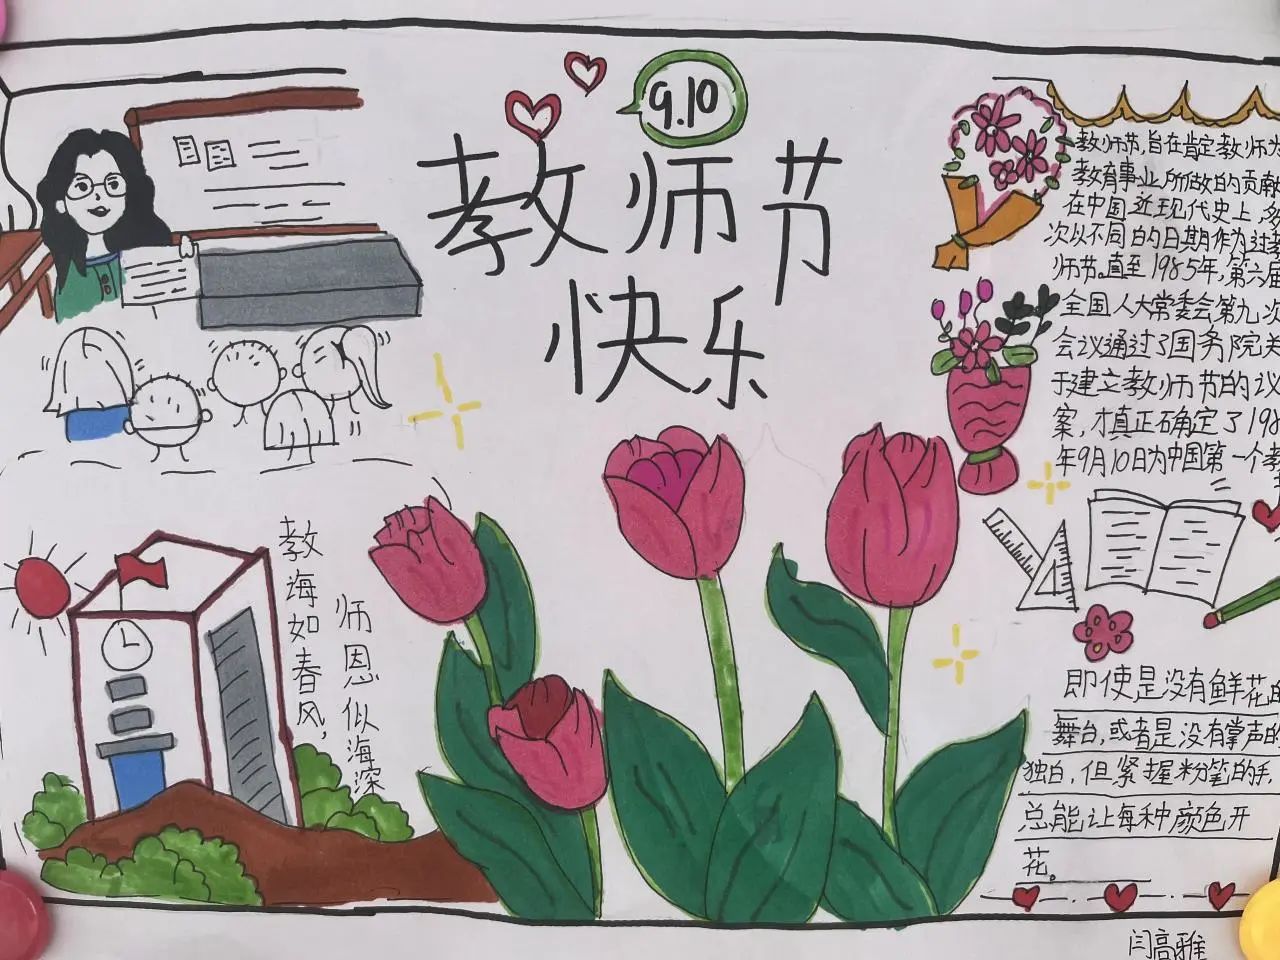 9.10
教师节
快乐
教师节,旨在肯定教师为
教育事业所做的贡献
在中国近现代史上,多
次以不同的日期作为过教
师节。直至1985年,第六届
全国人大常委会第九次
会议通过了国务院关
于建立教师节的议
案,才真正确定了198
年9月10日为中国第一个教
教海如春风,
师恩似海深
即使是没有鲜花的
舞台,或者是没有掌声的
独白,但紧握粉笔的手,
总能让每种颜色开
花。
闫高雅